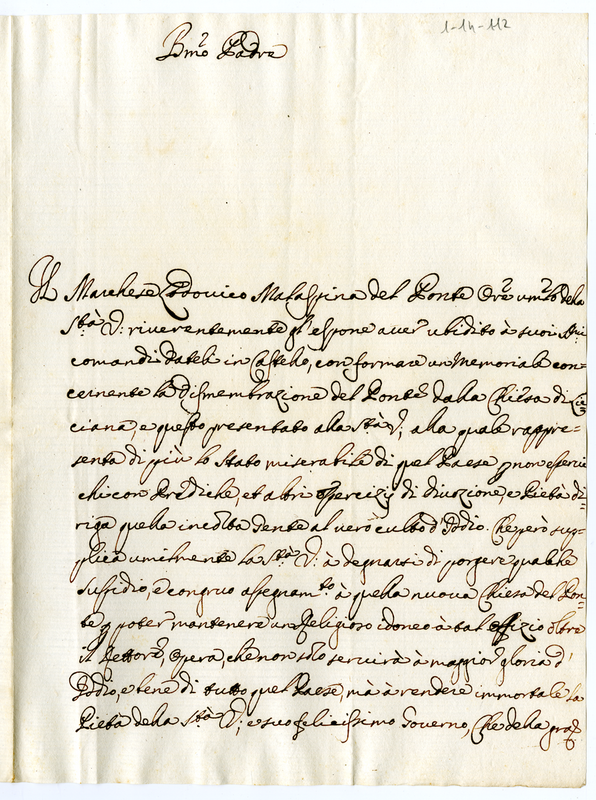 1-14-112
Bmo Padre
Il Marchese Lodovico Malaspina del Ponte Ore umo della
Stà V: riverentemente gl'espone aver ubidito à suoi
comandi dateli in Castello, con formare un Memoriale con=
cernente la Dismembrazione del Ponte dalla Chiesa di Li=
ciana, e questo presentato alla Stà V; alla quale rappre=
senta di più lo stato miserabile di quel Paese non esservi
chi con Prediche, et altri esercizij di divozione, e Pietà di=
riga quella inculta Gente al vero culto d'Iddio. Che però sup=
plica umilmente la Stà V: à degnarsi di porgere qualche
sussidio, e congruo assegnamto à quella nuova Chiesa del Pon=
te p poter mantenere un Religioso idoneo à tal offizio oltre
il Rettore, Opera, che non solo servirà à maggior gloria d'
Iddio, e bene di tutto quel Paese, mà à rendere immortale la
Pietà della Stà V; e suo felicissimo Governo, Che della graz